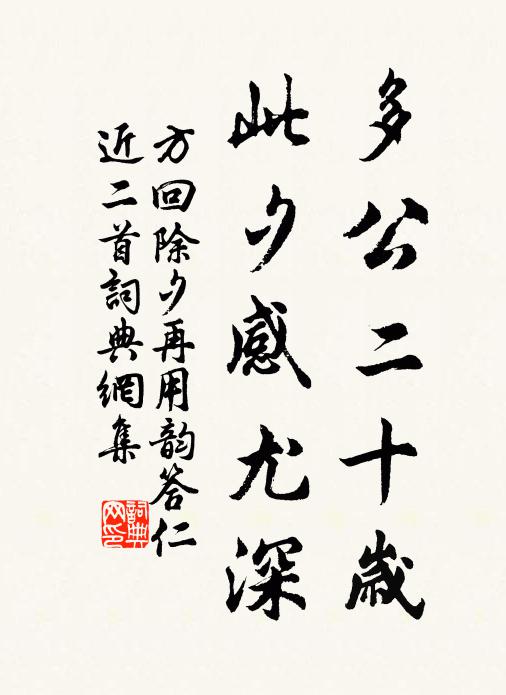 多公二十歲
此夕感尤深
方回除夕再用韵答仁
近二首詞典網集
詞典
网印